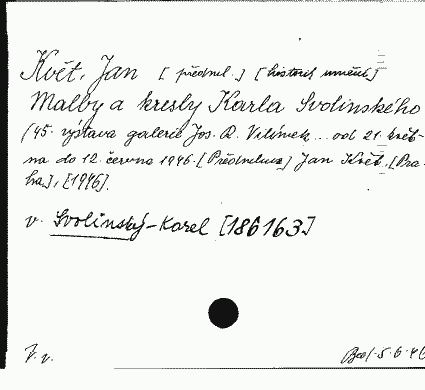 Květ, Jan [předml.] [historik umění]
Malby a kresby Karla Svolinského
(45. výstava galerie Jos. R. Vilímek... od 21. květ-
na do 12. června 1946. [Předmluva] Jan Květ. [Pra-
ha], [1946].
v. Svolinský-Karel [186163]
V. v.
5.6.46